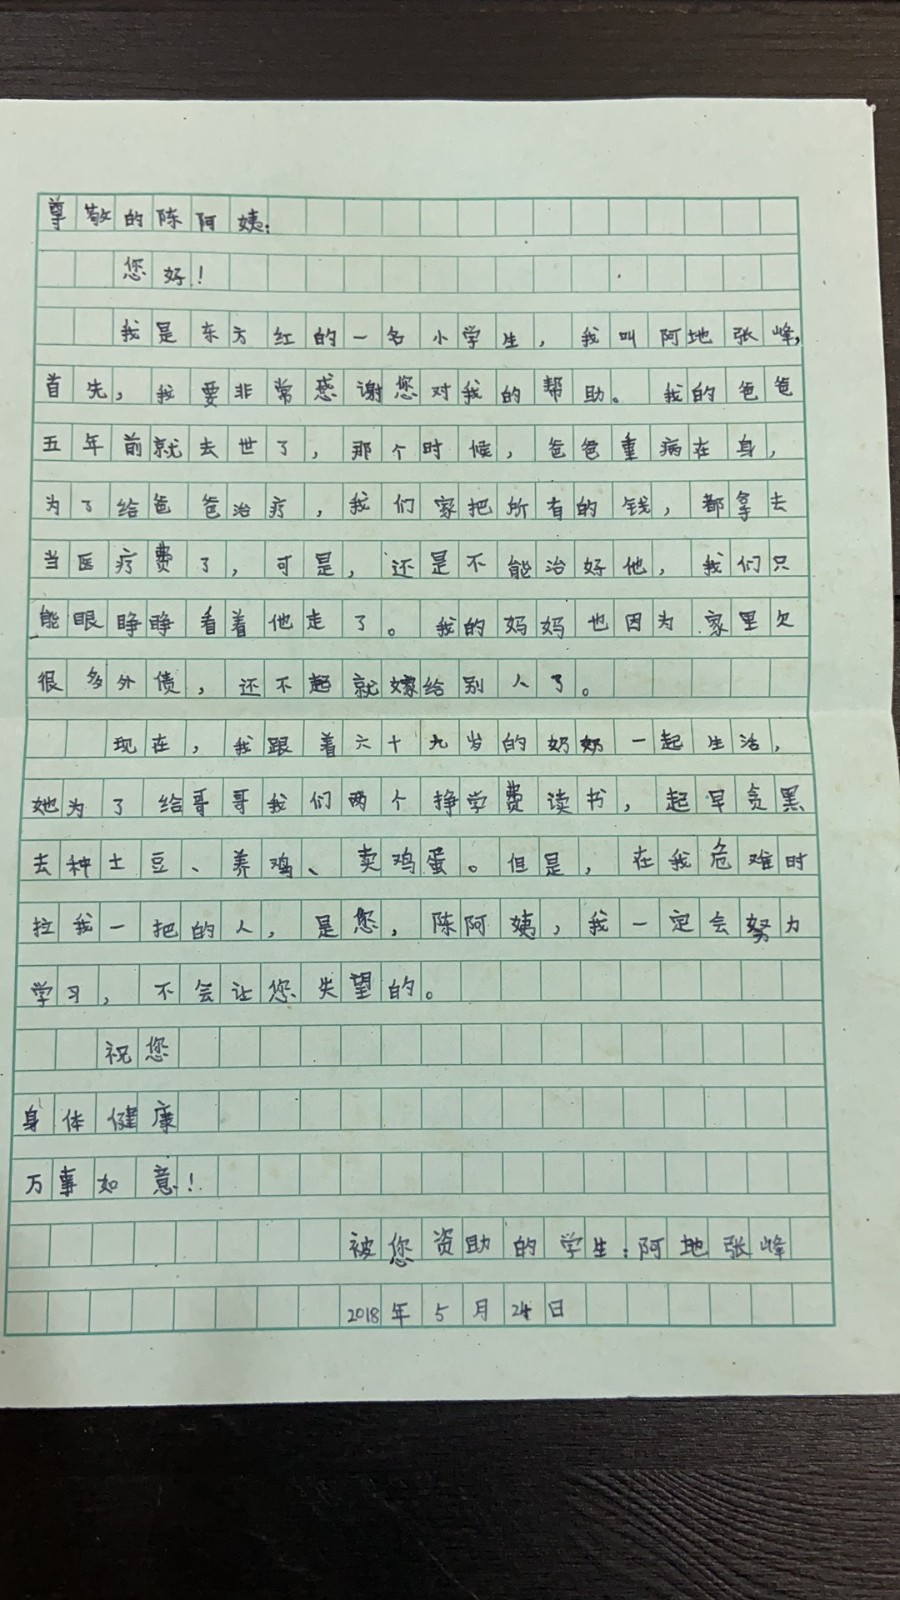 尊敬的陈阿姨：
您好！
我是东方红的一名小学生，我叫阿地张峰，
首先，我要非常感谢您对我的帮助。我的爸爸
五年前就去世了，那个时候，爸爸重病在身，
为了给爸爸治疗，我们家把所有的钱，都拿去
当医疗费了，可是，还是不能治好他，我们只
能眼睁睁看着他走了。我的妈妈也因为家里欠
很多外债，还不起就嫁给别人了。
现在，我跟着六十九岁的奶奶一起生活，
她为了给哥哥我们两个挣学费读书，起早贪黑
去种土豆、养鸡、卖鸡蛋。但是，在我危难时
拉我一把的人，是您，陈阿姨，我一定会努力
学习，不会让您失望的。
祝您
身体健康
万事如意！
被您资助的学生：阿地张峰
2018年5月24日